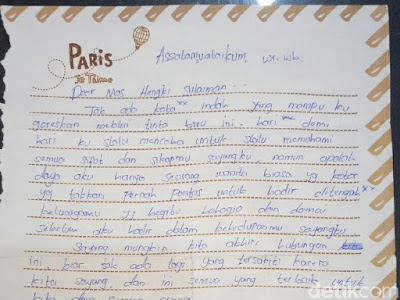 PARIS
Je T'aime
Assalamualaikum, wr. wb.
Dear Mas Hengki Sulaiman...
Tak ada kata ** indah yang mampu ku
goreskan melalui tinta baru ini. hari demi
hari ku slalu mencoba untuk slalu memahami
semua sifat dan sikapmu sayangku, namun apalah
daya aku hanya seorang wanita biasa yg kotor
yg takkan pernah pantas untuk hadir ditengah**
keluargamu yg begitu bahagia dan damai
sebelum aku hadir dalam kehidupanmu sayangku
Sayang mungkin kita akhiri hubungan
ini biar tak ada lagi yg tersakiti karena
kita sayang dan ini semua yg terbaik untuk
detikcom